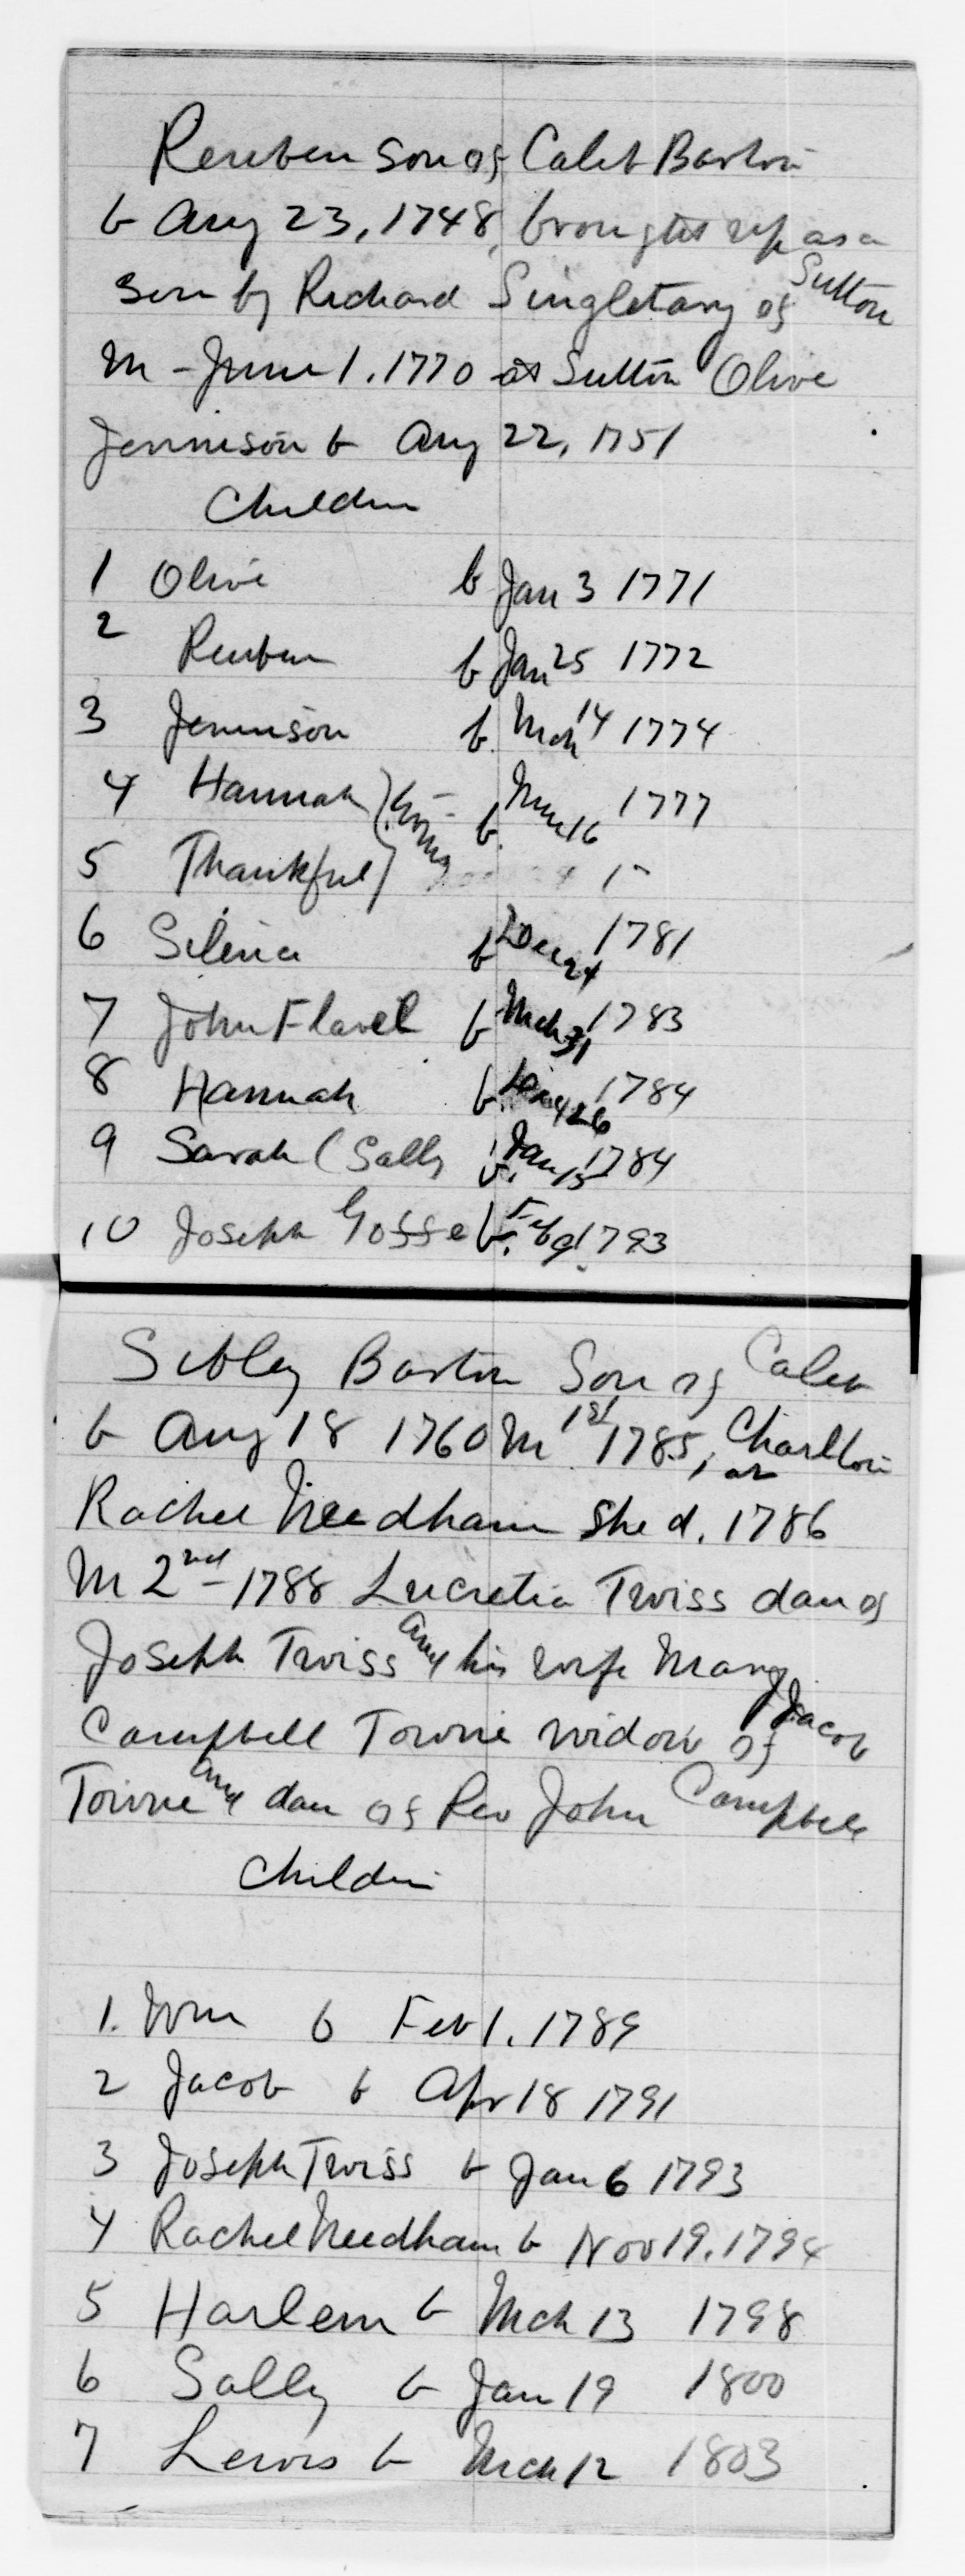 Reuben son of Caleb Barton
b Aug 23, 1748, brought up as a
son by Richard Singletary of Sutton
m - June 1. 1770 at Sutton Olive
Jennison b Aug 22, 1751
Children
1 Olive b Jan 3 1771
2 Reuben b Jan 25 1772
3 Jennison b. Mch 14 1774
4 Hannah ) b. 16 1777
5 Thankful )
6 Silena b Dec 24 1781
7 John Flavel b Mch 31 1783
8 Hannah b. 26 1784
9 Sarah ( Sally b. Jan 15 1784
10 Joseph Goffe b. Feb 9 1793
Sibley Barton Son of Caleb
b Aug 18 1760 m 1st 1785, at Charlton
Rachel Needham she d. 1786
m 2nd - 1788 Lucretia Twiss dau of
Joseph Twiss and his wife Mary
Campbell Towne widow of Jacob
Towne and dau of Rev John Campbell
Children
1. Wm b Feb 1. 1789
2 Jacob b Apr 18 1791
3 Joseph Twiss b Jan 6 1793
4 Rachel Needham b Nov 19. 1794
5 Harlem b Mch 13 1798
6 Sally b Jan 19 1800
7 Lewis b Mch 12 1803